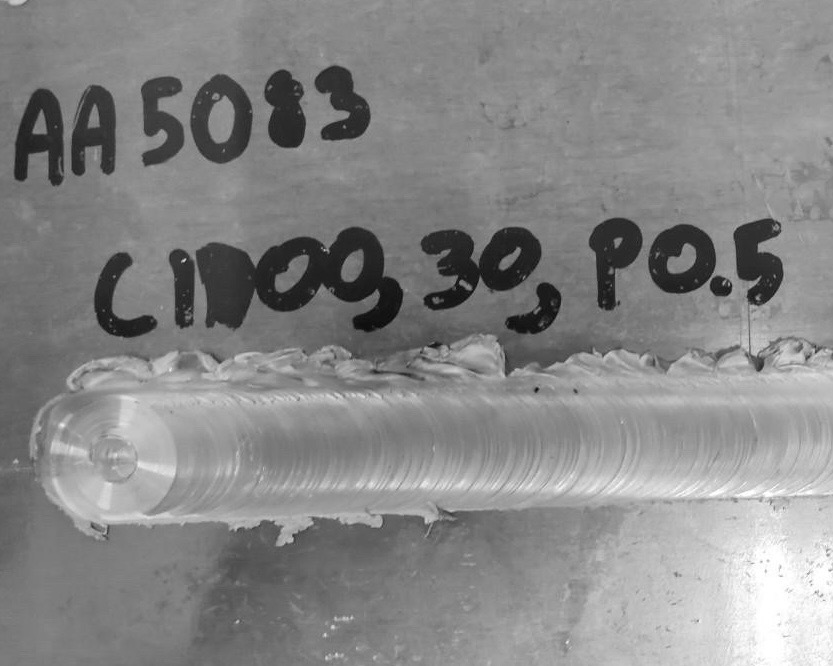 AA 5083
C1000, 30, P0.5